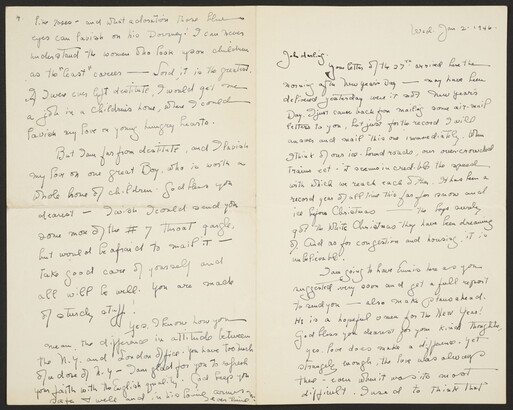 Wed. Jan 2 - 1946 -
John darling -
Your letter of the 27th arrived here the
morning after New Years Day — may have been
delivered yesterday were it not New Years
Day. I just came back from mailing some air mail
letters to you, but just for the record I will
answer and mail this one immediately. When
I think of our ice-bound roads, our overcrowded
trains etc - it seems incredible the speed
with which we reach each other. It has been a
record year of all time thus far for snow and
ice before Christmas — the boys surely
got the White Christmas they have been dreaming
of and as for congestion and housing, it is
unbelievable.
I am going to have in as you
suggested very soon and get a full report
to send you — also make plans ahead.
He is a hopeful omen for the New Year!
God bless you dearest for your kind thoughts,
yes, love does make a difference. yet
strangely enough the love was always
there - even when it was so most
difficult. I used to think that
4.
and what adoration those blue
eyes can lavish on his Mommy! I can never
understand the women who look upon children
as the "least" careers — Lord, it is the greatest.
If I were ever left destitute, I would get me
a job in a Children's home, where I could
lavish my love on young hungry hearts.
But I am far from destitute, and I lavish
my love on one great Boy, who is worth a
whole home of children - God bless you
dearest — I wish I could send you
some more of the #7 Throat gargle,
but would be afraid to mail it —
take good care of yourself and
all will be well. You are made
of sturdy stuff.
Yes, I know how you
mean, the difference in attitude between
the N.Y. and London office. You have too much
of a dose of N.Y. - I am glad for you to refresh
your faith with the English quality. God keep you
safe & well and in his loving